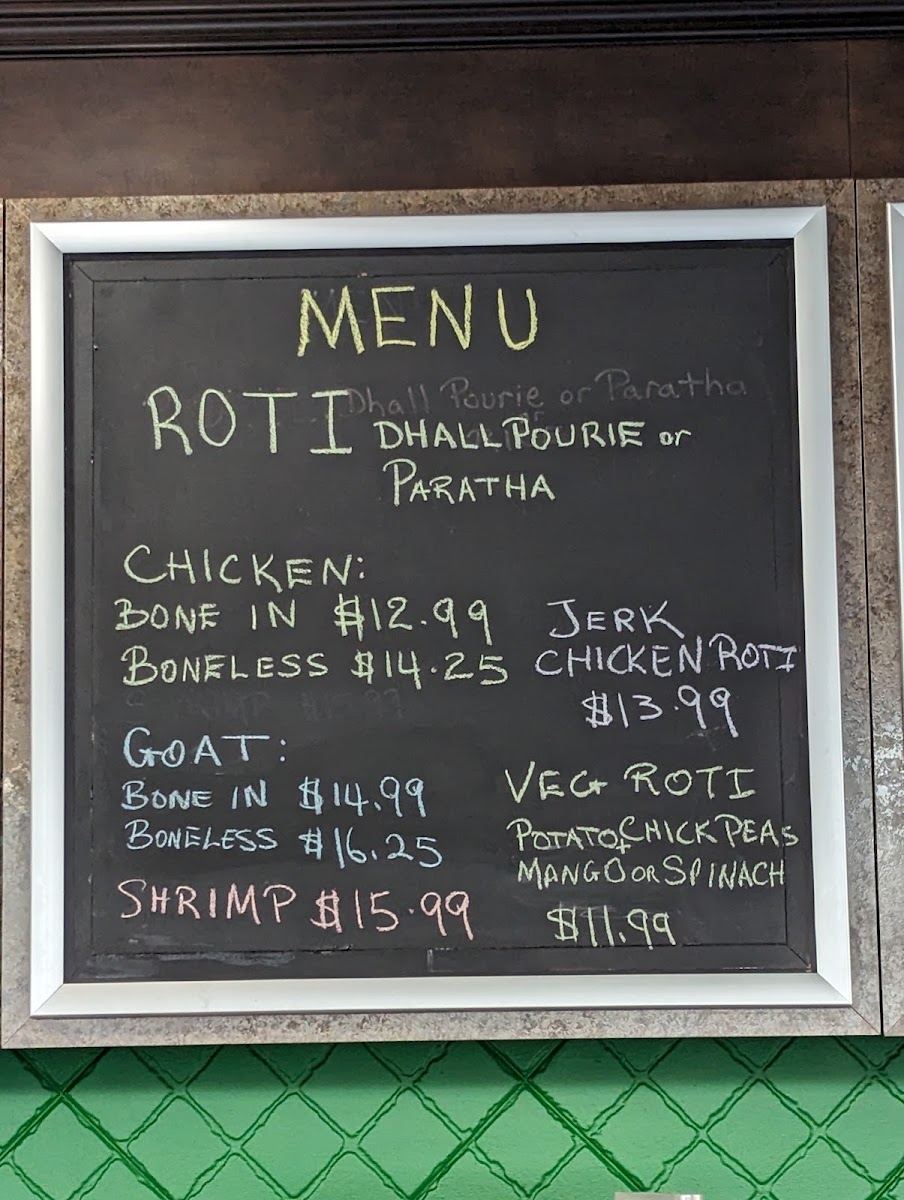 MENU
ROTI Dhall Pourie or Paratha
DHALL POURIE or
PARATHA
CHICKEN:
BONE IN $12.99
BONELESS $14.25
GOAT:
BONE IN $14.99
BONELESS $16.25
SHRIMP $15.99
JERK
CHICKEN ROTI
$13.99
VEG ROTI
POTATO+CHICK PEAS
MANGO OR SPINACH
$11.99